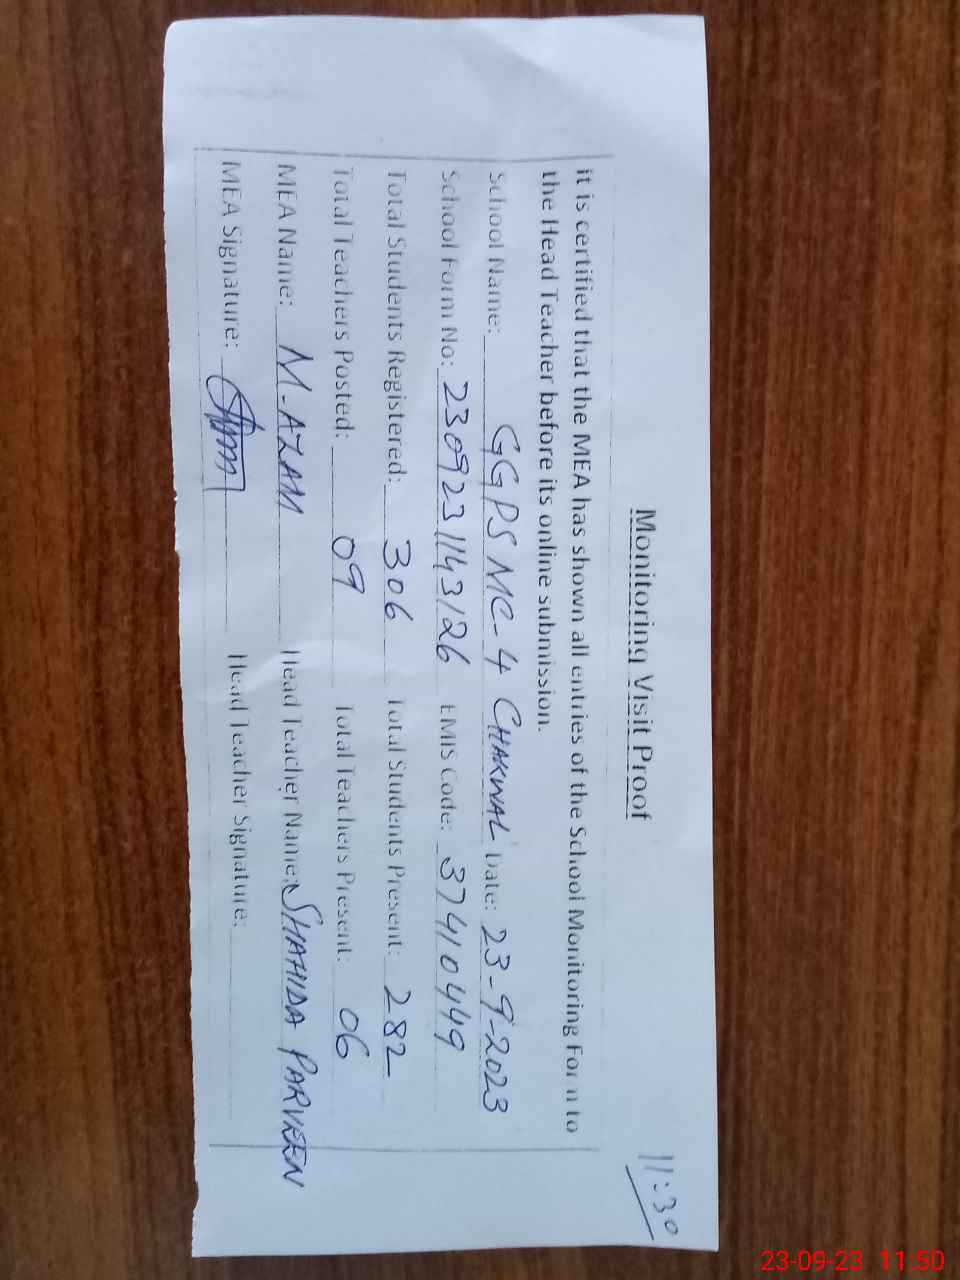 11:30
Monitoring Visit Proof
It is certified that the MEA has shown all entries of the School Monitoring Form to
the Head Teacher before its online submission.
School Name: GGPS MC-4 CHAKWAL Date: 23-9-2023
School Form No: 2309231143126 EMIS Code: 37410449
Total Students Registered: 306 Total Students Present: 282
Total Teachers Posted: 09 Total Teachers Present: 06
MEA Name: M-AZAM Head Teacher Name: SHAHIDA PARVEEN
MEA Signature: Head Teacher Signature:
23-09-23 11:50